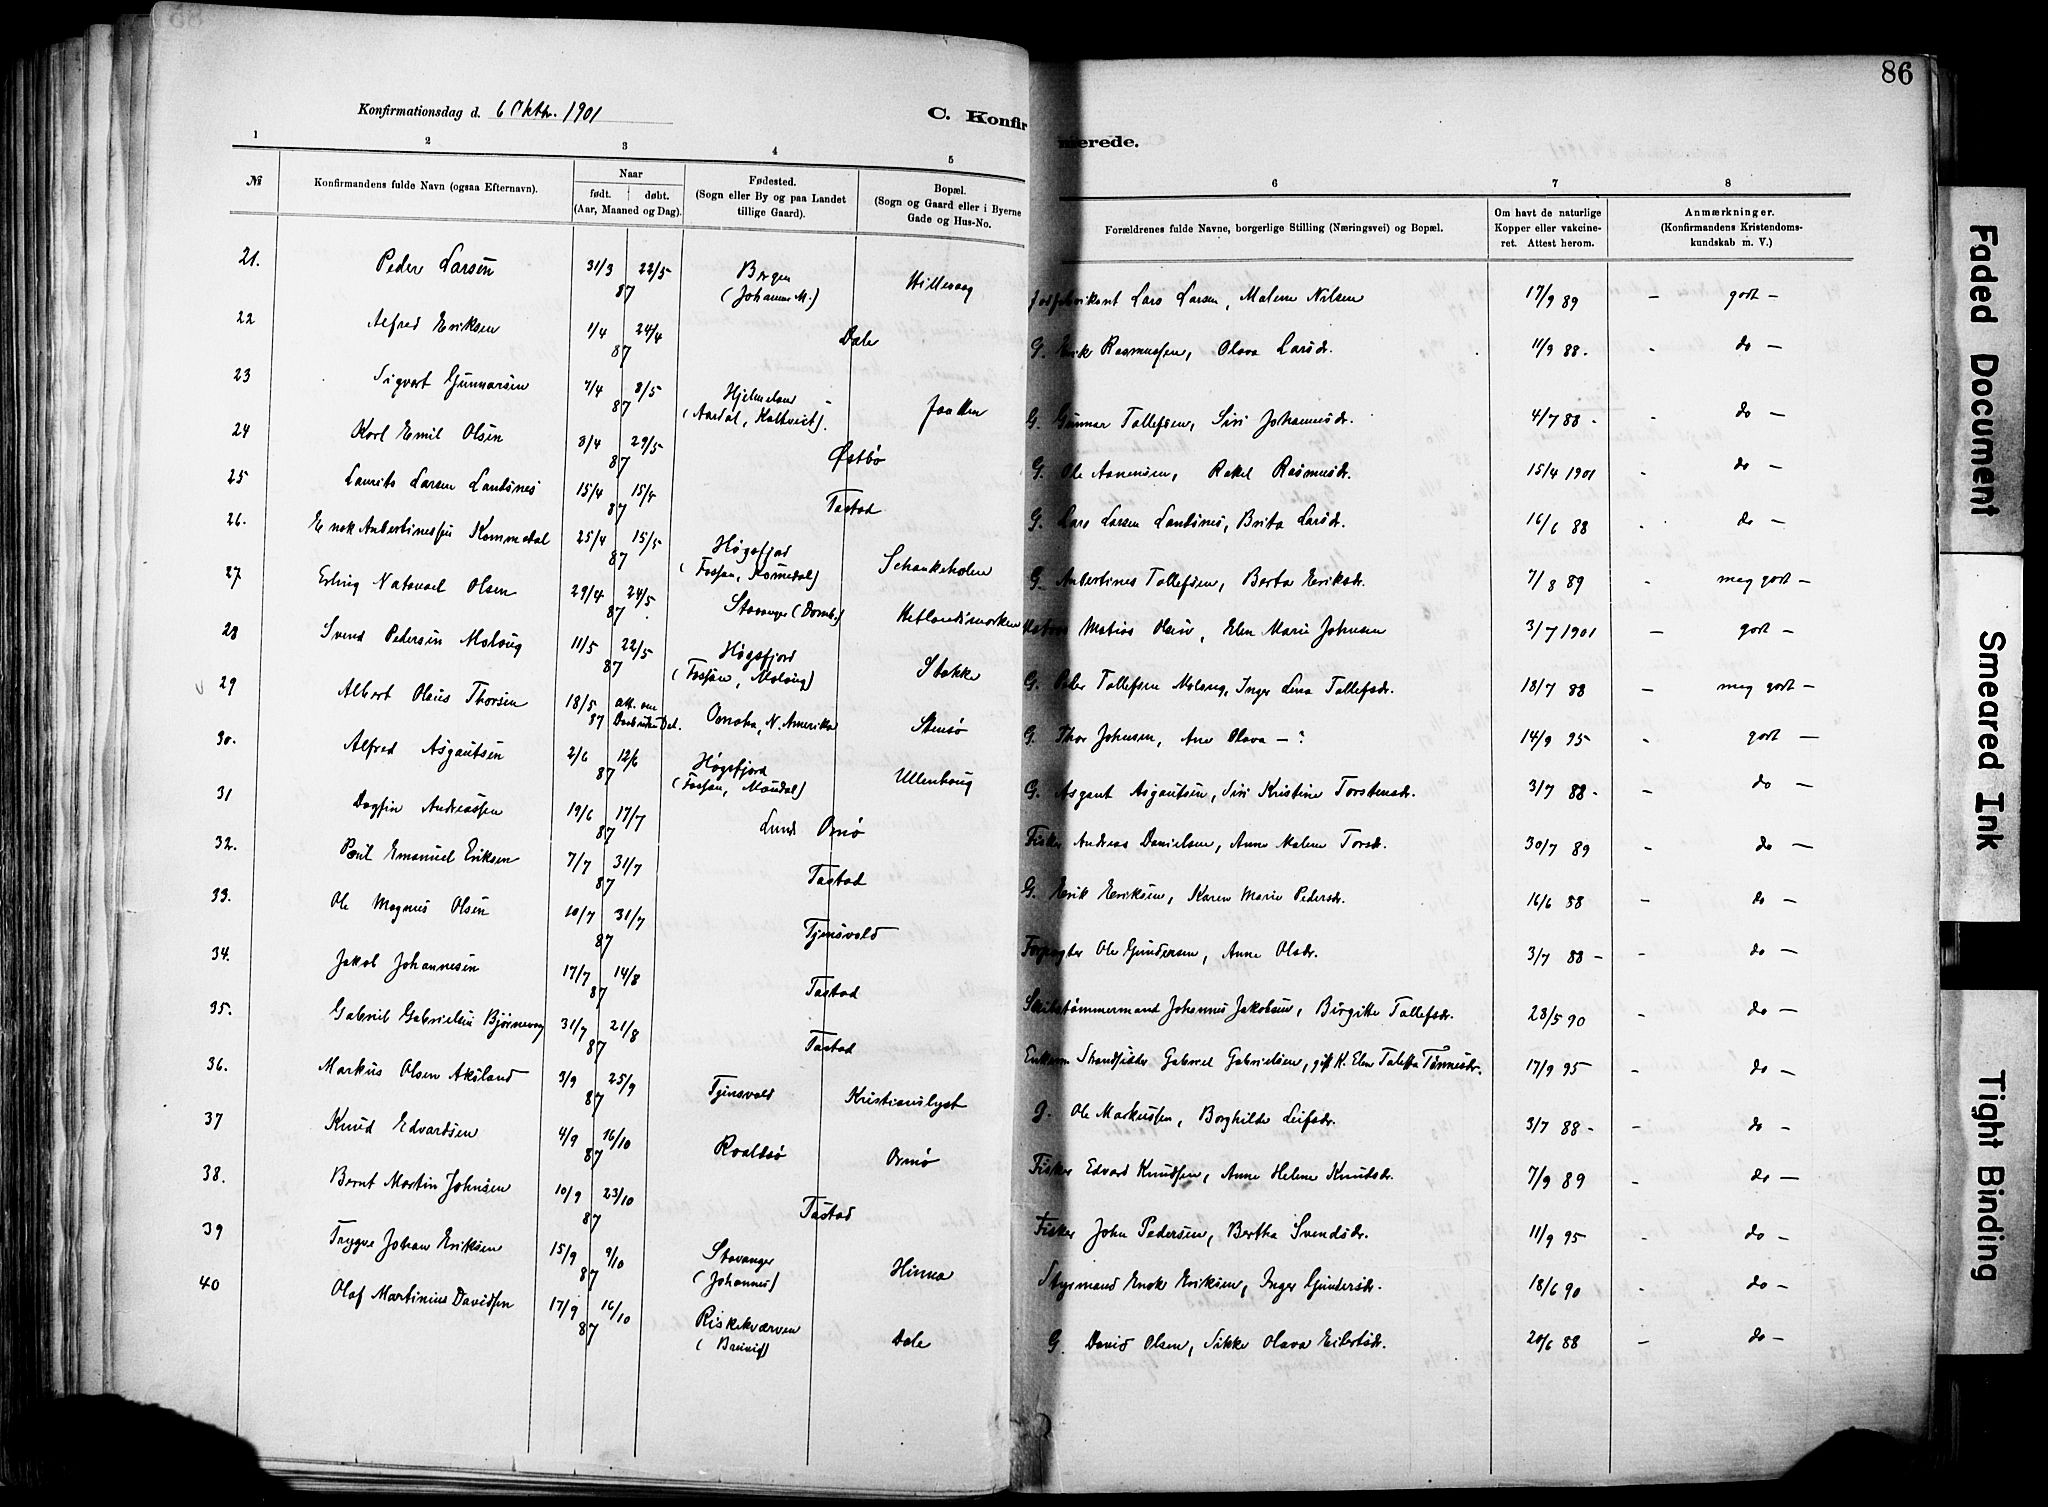 86
Konfirmationsdag d. 6 Oktbr. 1901
C. Konfirmerede.
1 2 3 4 5 6 7 8
№ Konfirmandens fulde Navn (ogsaa Efternavn). Naar født. døbt. (Aar, Maaned og Dag). Fødested. (Sogn eller By og paa Landet tillige Gaard). Bopæl. (Sogn og Gaard eller i Byerne Gade og Hus-No. Forældrenes fulde Navne, borgerlige Stilling (Næringsvei) og Bopæl. Om havt de naturlige Kopper eller vakcineret. Attest herom. Anmærkninger. (Konfirmandens Kristendomskundskab m. V.)
21. Peder Larsen 31/3 22/5 87 Bergen (Johannes M.) Hillevaag Lars Larsen, Malene Nilsen 17/9 89 – godt –
22 Alfred Eriksen 1/4 24/4 87 Dale G. Erik Rasmussen, Olava Larsdr. 11/9 88. - do –
23 Sigvart Gunnarsen 7/4 8/5 87 Hjelmeland (Aardal, Kaltveit). Jaatten G. Gunnar Tollefsen, Siri Johannesdr. 4/7 88 - - do –
24 Karl Emil Olsen 8/4 29/5 87 Østbø G. Ole Aanensen, Rakel Rasmusdr. 15/4 1901 - do –
25 Laurits Larsen Landsnes 15/4 15/4 87 Tastad G. Lars Larsen Landsnes, Brita Larsdr. 16/6 88 - do –
26. Enok Anbertinessen Kommedal 25/4 15/5 87 Høgsfjord (Fossan, Komedal) Schankeholen G. Anbertines Tollefsen, Berta Eriksdr. 7/8 89 - meg godt –
27 Erling Natanael Olsen 29/4 24/5 87. Stavanger (Domk.) Hetlandsmarken Matros Matias Olsen, Elen Marie Johnsen 3/7 1901 – godt –
28 Svend Pedersen Molaug 11/5 22/5 87 Høgsfjord (Fossan, Molaug) Stokke G. Peder Tollefsen Molaug, Inger Lena Tollefsdr. 18/7 88 – meg godt –
29 Albert Olaus Thorsen 18/5 87 att. om Omaha, N. Amerika Stensø G. Thor Johnsen, Ane Olava – ? 14/9 95 - godt –
30. Alfred Asgautsen 2/6 12/6 87 Høgsfjord (Fossan, Maudal) Ullenhaug G. Asgaut Asgautsen, Siri Kristine Torstensdr. 3/7 88 - – do –
31 Dagfin Andreassen 19/6 17/7 87 Lund Ormø Fisker Andreas Danielsen, Anne Malene Torsdr. 30/7 89 – do –
32. Paul Emanuel Eriksen 7/7 31/7 87 Tastad G. Erik Eriksen, Karen Marie Pedersdr. 16/6 88 – do –
33. Ole Magnus Olsen 10/7 31/7 87 Tjensvold Forpagter Ole Gundersen, Anne Olsdr. 3/7 88 – - do –
34. Jakob Johannesen 17/7 14/8 87 Tastad Skibstømmermand Johannes Jakobsen, Birgitte Tollefsdr. 28/5 90 - do –
35. Gabriel Gabrielsen Bjørnevaag 31/7 21/8 87 Tastad Enkem. Strandsidder Gabriel Gabrielsen, gift K. Elen Taletta Tønnesdr. 17/9 95 - do –
36. Markus Olsen Aksland 3/9 25/9 87 Tjensvold Kristianslyst G. Ole Markussen, Borghilde Leifsdr. 3/7 88 - – do –
37 Knud Edvardsen 4/9 16/10 87 Roaldsø Ormø Fisker Edvard Knudsen, Anne Helene Knudsdr. 7/9 89 - do –
38. Bernt Martin Johnsen 10/9 23/10 87 Tastad Fisker John Pedersen, Bertha Svendsdr. 11/9 95 - do –
39 Trygve Johan Eriksen 15/9 9/10 87 Stavanger (Johannes) Hinna Styrmand Enok Eriksen, Inger Gundersdr. 18/6 90 - do –
40 Olaf Martinius Davidsen 17/9 16/10 87 Riskekværven Dale G. David Olsen, Sikke Olava Eilertsdr. 20/6 88 – do –
Faded Document
Smeared Ink
Tight Binding